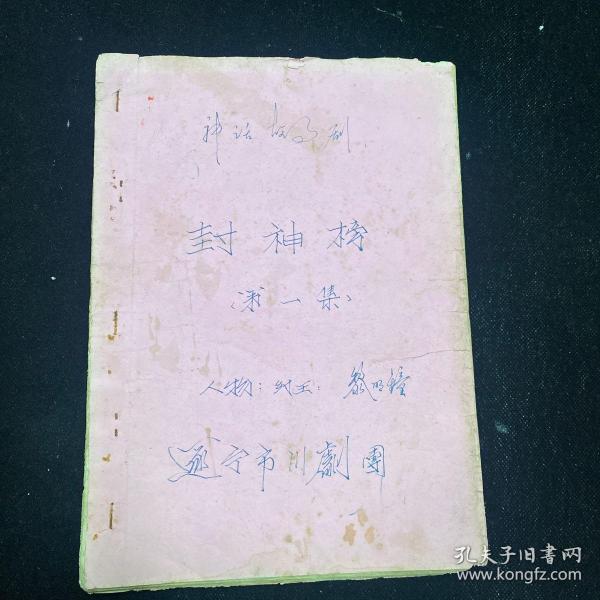 神话故事剧
封神榜
（第一集）
人物：纣王：黎明
遂宁市川劇團
孔夫子旧书网
www.kongfz.com